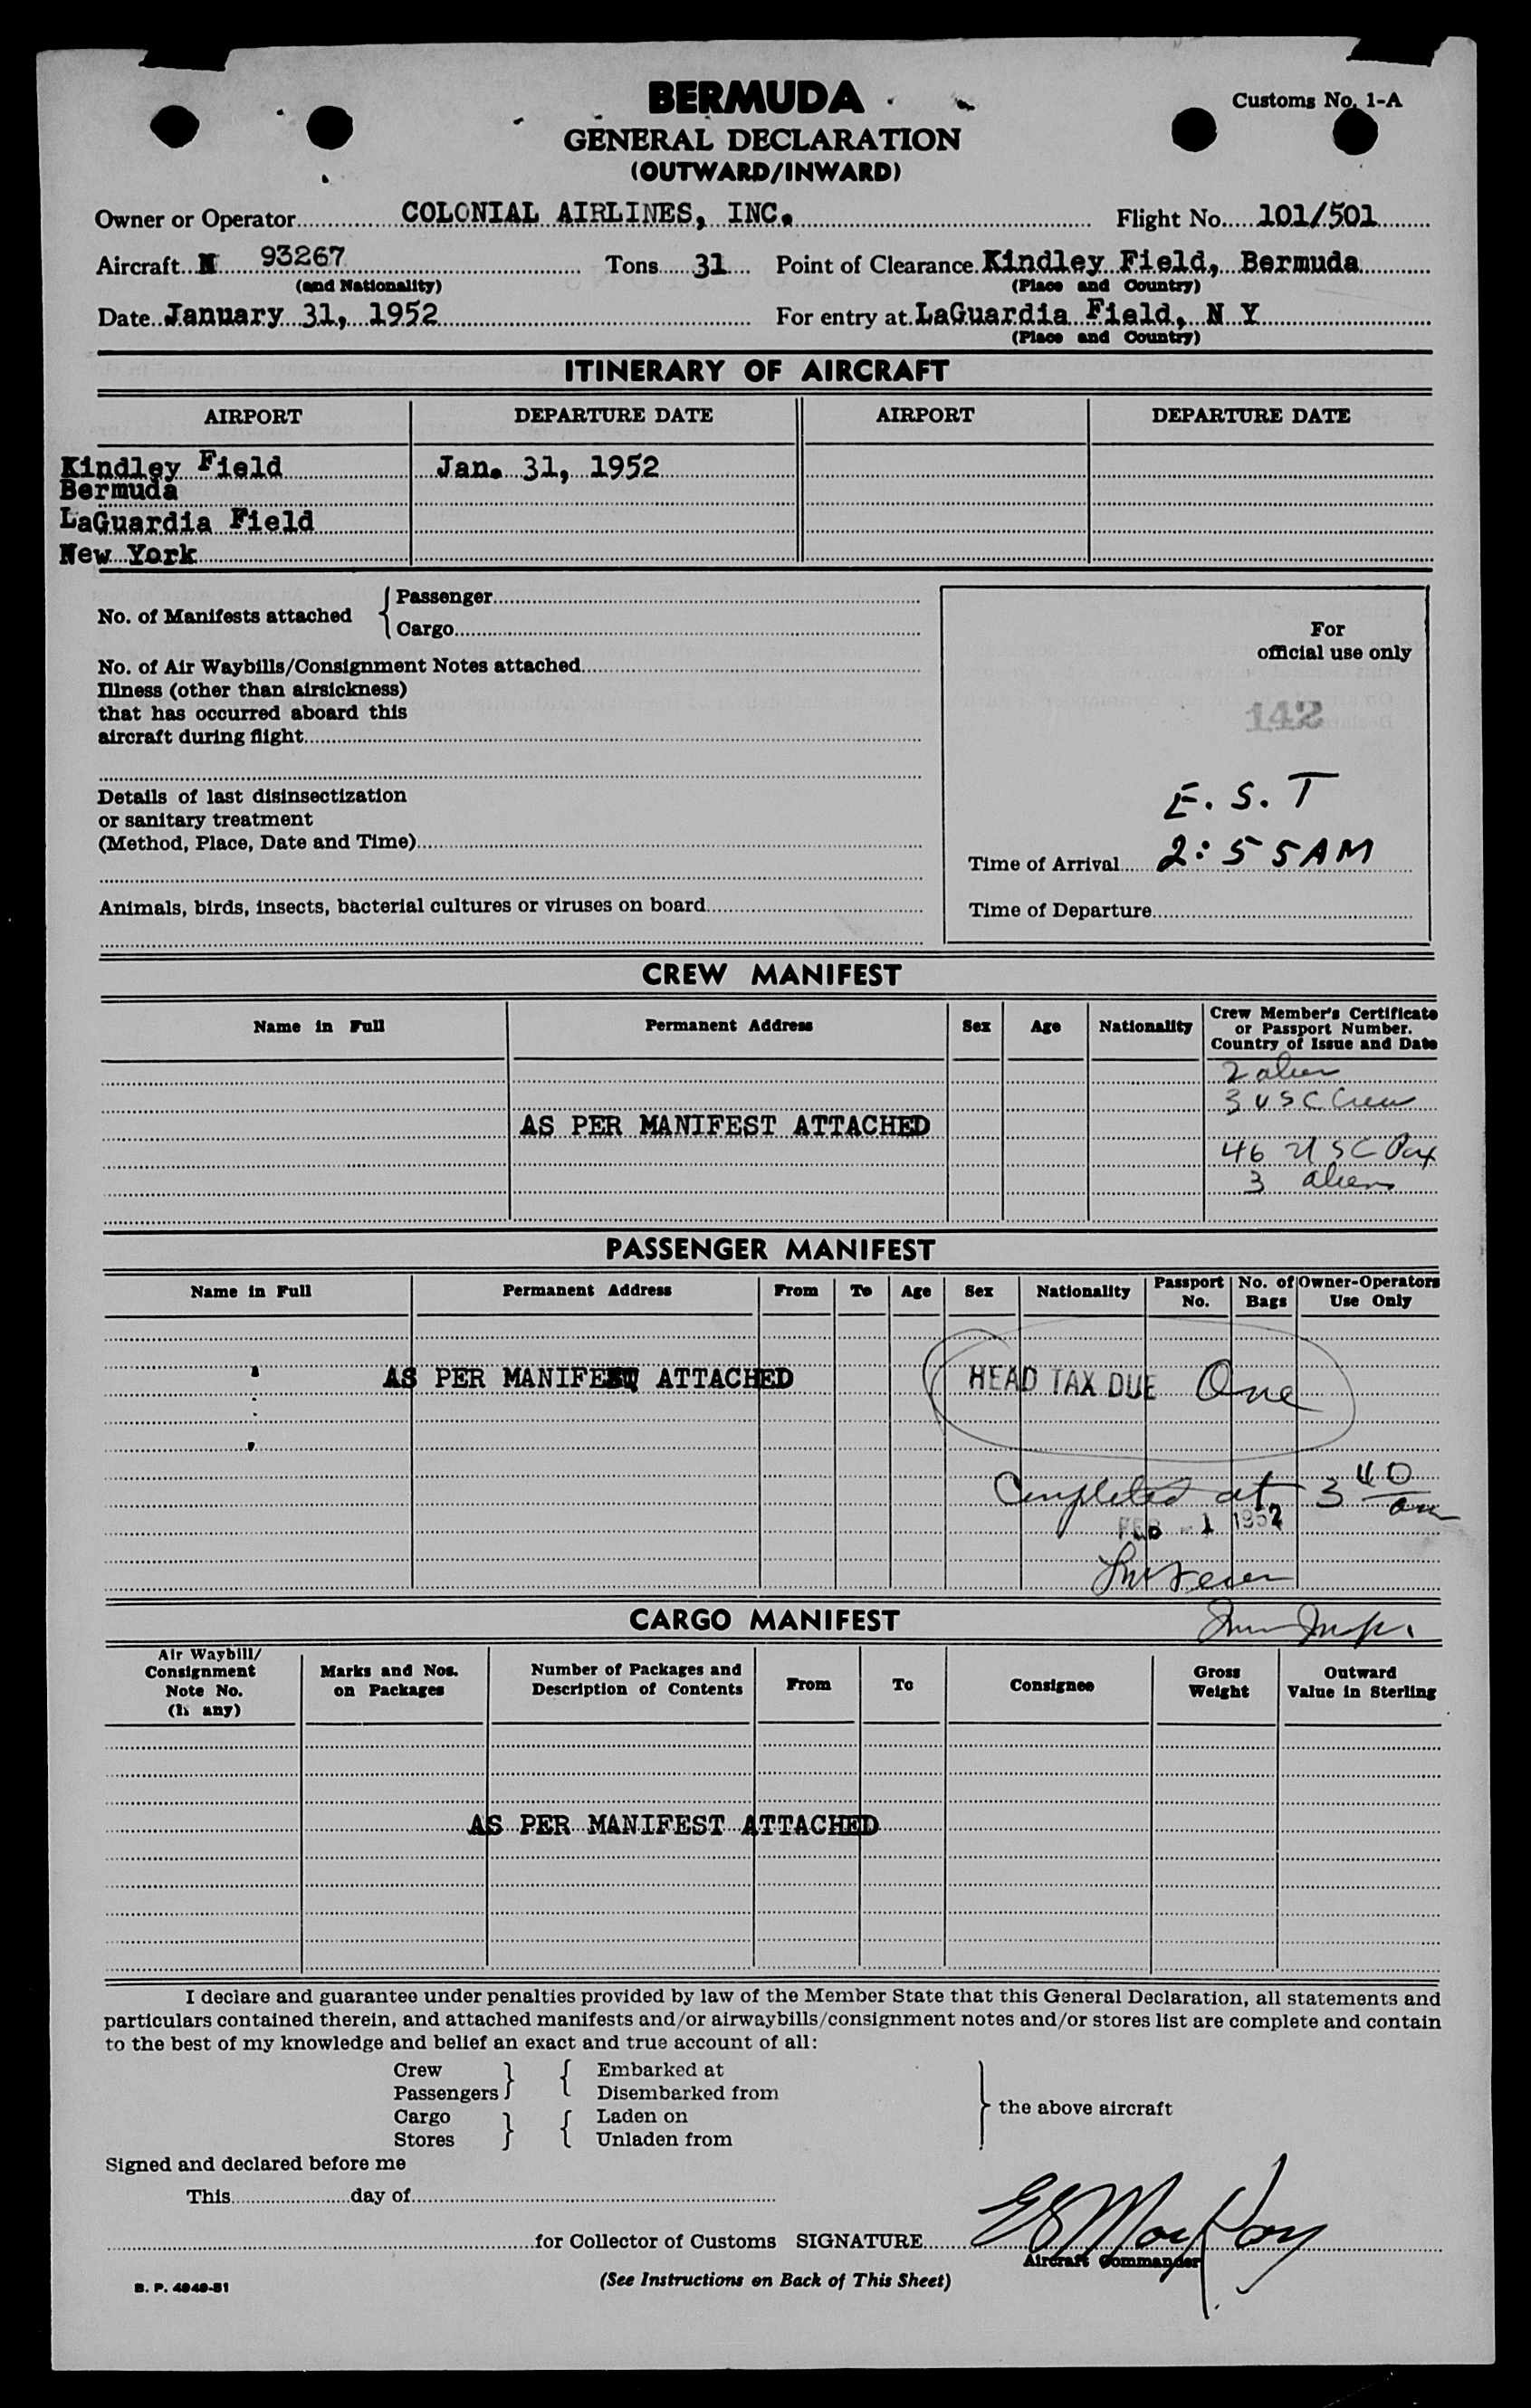 BERMUDA
Customs No. 1-A
GENERAL DECLARATION
(OUTWARD/INWARD)
Owner or Operator COLONIAL AIRLINES, INC. Flight No. 101/501
Aircraft N 93267 Tons 31 Point of Clearance Kindley Field, Bermuda
(and Nationality) (Place and Country)
Date January 31, 1952 For entry at LaGuardia Field, N Y
(Place and Country)
ITINERARY OF AIRCRAFT
AIRPORT DEPARTURE DATE AIRPORT DEPARTURE DATE
Kindley Field Jan. 31, 1952
Bermuda
LaGuardia Field
New York
No. of Manifests attached { Passenger
Cargo
For
official use only
No. of Air Waybills/Consignment Notes attached
Illness (other than airsickness)
that has occurred aboard this
aircraft during flight
142
Details of last disinsectization
or sanitary treatment
(Method, Place, Date and Time)
E.S.T
Time of Arrival 2:55AM
Animals, birds, insects, bacterial cultures or viruses on board
Time of Departure
CREW MANIFEST
Name in Full Permanent Address Sex Age Nationality Crew Member's Certificate
or Passport Number.
Country of Issue and Date
2 alien
3 USC Crew
AS PER MANIFEST ATTACHED
46 USC Pax
3 aliens
PASSENGER MANIFEST
Name in Full Permanent Address From To Age Sex Nationality Passport No. No. of Bags Owner-Operators Use Only
AS PER MANIFEST ATTACHED
HEAD TAX DUE One
Completed at 3 40 am
FEB -1 1952
CARGO MANIFEST
Air Waybill/
Consignment
Note No.
(If any)
Marks and Nos.
on Packages
Number of Packages and
Description of Contents
From To Consignee
Gross
Weight
Outward
Value in Sterling
AS PER MANIFEST ATTACHED
I declare and guarantee under penalties provided by law of the Member State that this General Declaration, all statements and
particulars contained therein, and attached manifests and/or airwaybills/consignment notes and/or stores list are complete and contain
to the best of my knowledge and belief an exact and true account of all:
Crew } { Embarked at
Passengers Disembarked from
Cargo } { Laden on
Stores Unladen from
} the above aircraft
Signed and declared before me
This day of
for Collector of Customs SIGNATURE E S MacKay
Aircraft Commander
B. P. 4949-51
(See Instructions on Back of This Sheet)